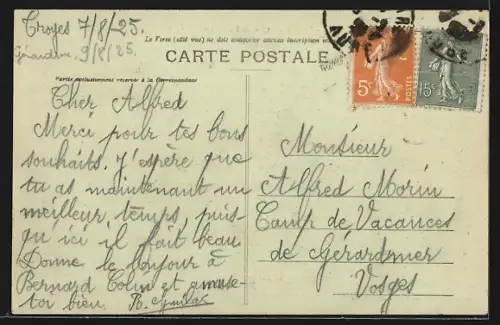 Troyes 7/8/25.
Gérardmer 9/8/25.
Le Verso (côté vue) ne doit comporter aucune inscription
CARTE POSTALE
Partie exclusivement réservée à la Correspondance
Cher Alfred
Merci pour tes bons
souhaits. J'espère que
tu as maintenant un
meilleur temps, puis-
qu'ici il fait beau.
Donne le bonjour à
Bernard Colin et amuse-
toi bien.
5c
POSTES
15c
Monsieur
Alfred Morin
Camp de Vacances
de Gérardmer
Vosges